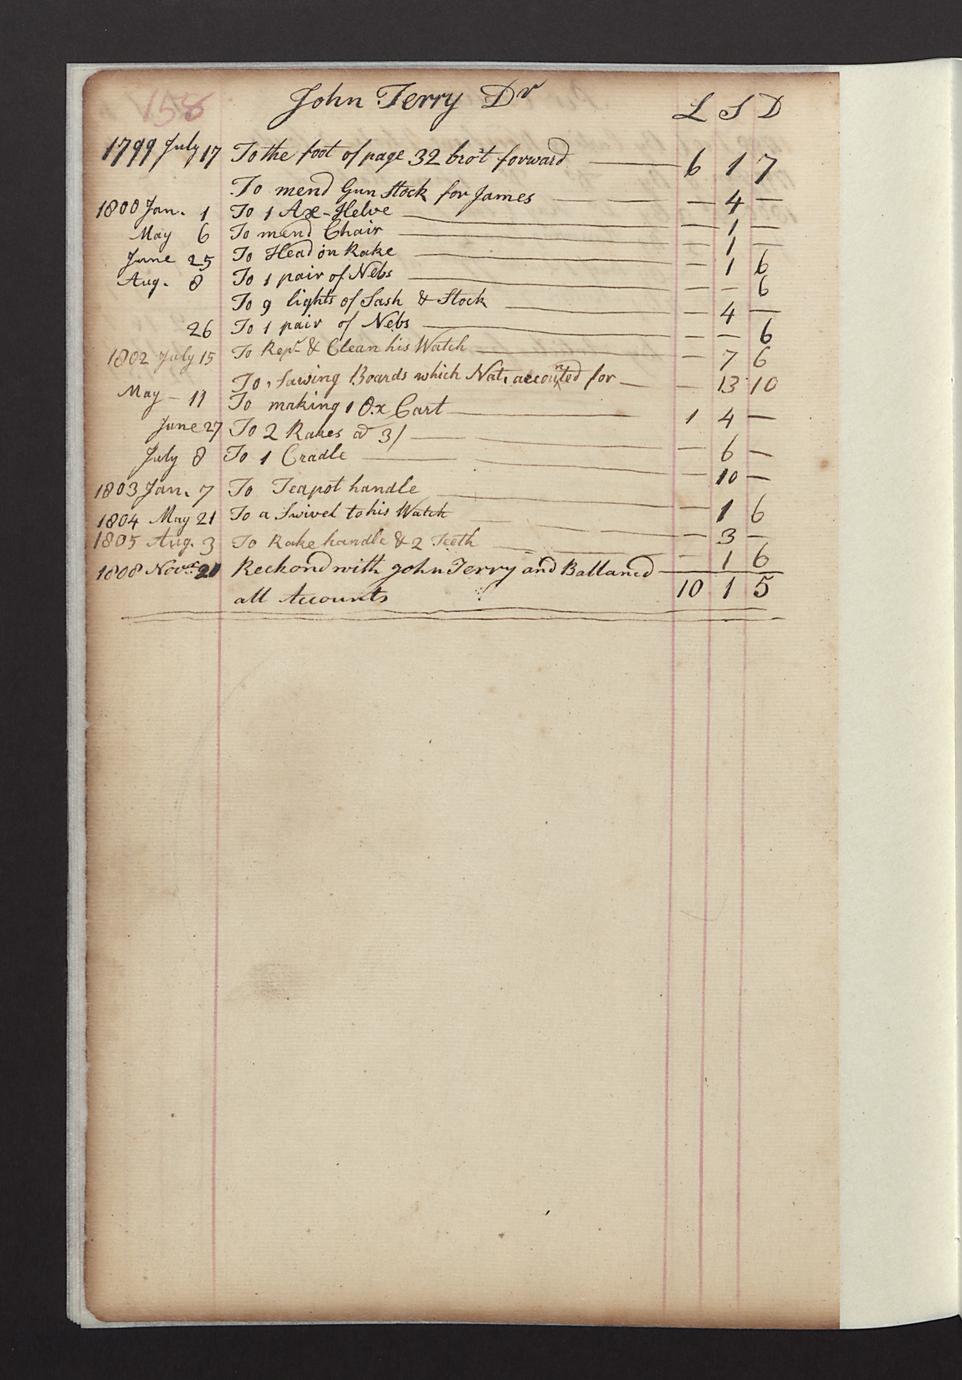 158
John Terry Dr
L S D
1799 July 17 To the foot of page 32 bro't forward 6 1 7
To mend Gun Stock for James — 4 —
1800 Jan. 1 To 1 Ax-Helve — 1 —
May 6 To mend Chair — 1 —
June 25 To Head in Rake — 1 6
Aug. 8 To 1 pair of Nebs — — 6
To 9 lights of Sash & Stock — 4 —
26 To 1 pair of Nebs — — 6
1802 July 15 To Repr. & Clean his Watch — 7 6
To Sawing Boards which Nat. accounted for — 13 10
May — 11 To making 1 Ox Cart 1 4 —
June 27 To 2 Rakes @ 3/ — 6 —
July 8 To 1 Cradle — 10 —
1803 Jan. 7 To Teapot handle — 1 6
1804 May 21 To a Swivel to his Watch — 3 —
1805 Aug. 3 To Rake handle & 2 Teeth 1 6
1808 Novr. 21 Reckond with John Terry and Ballancd
all Accounts 10 1 5